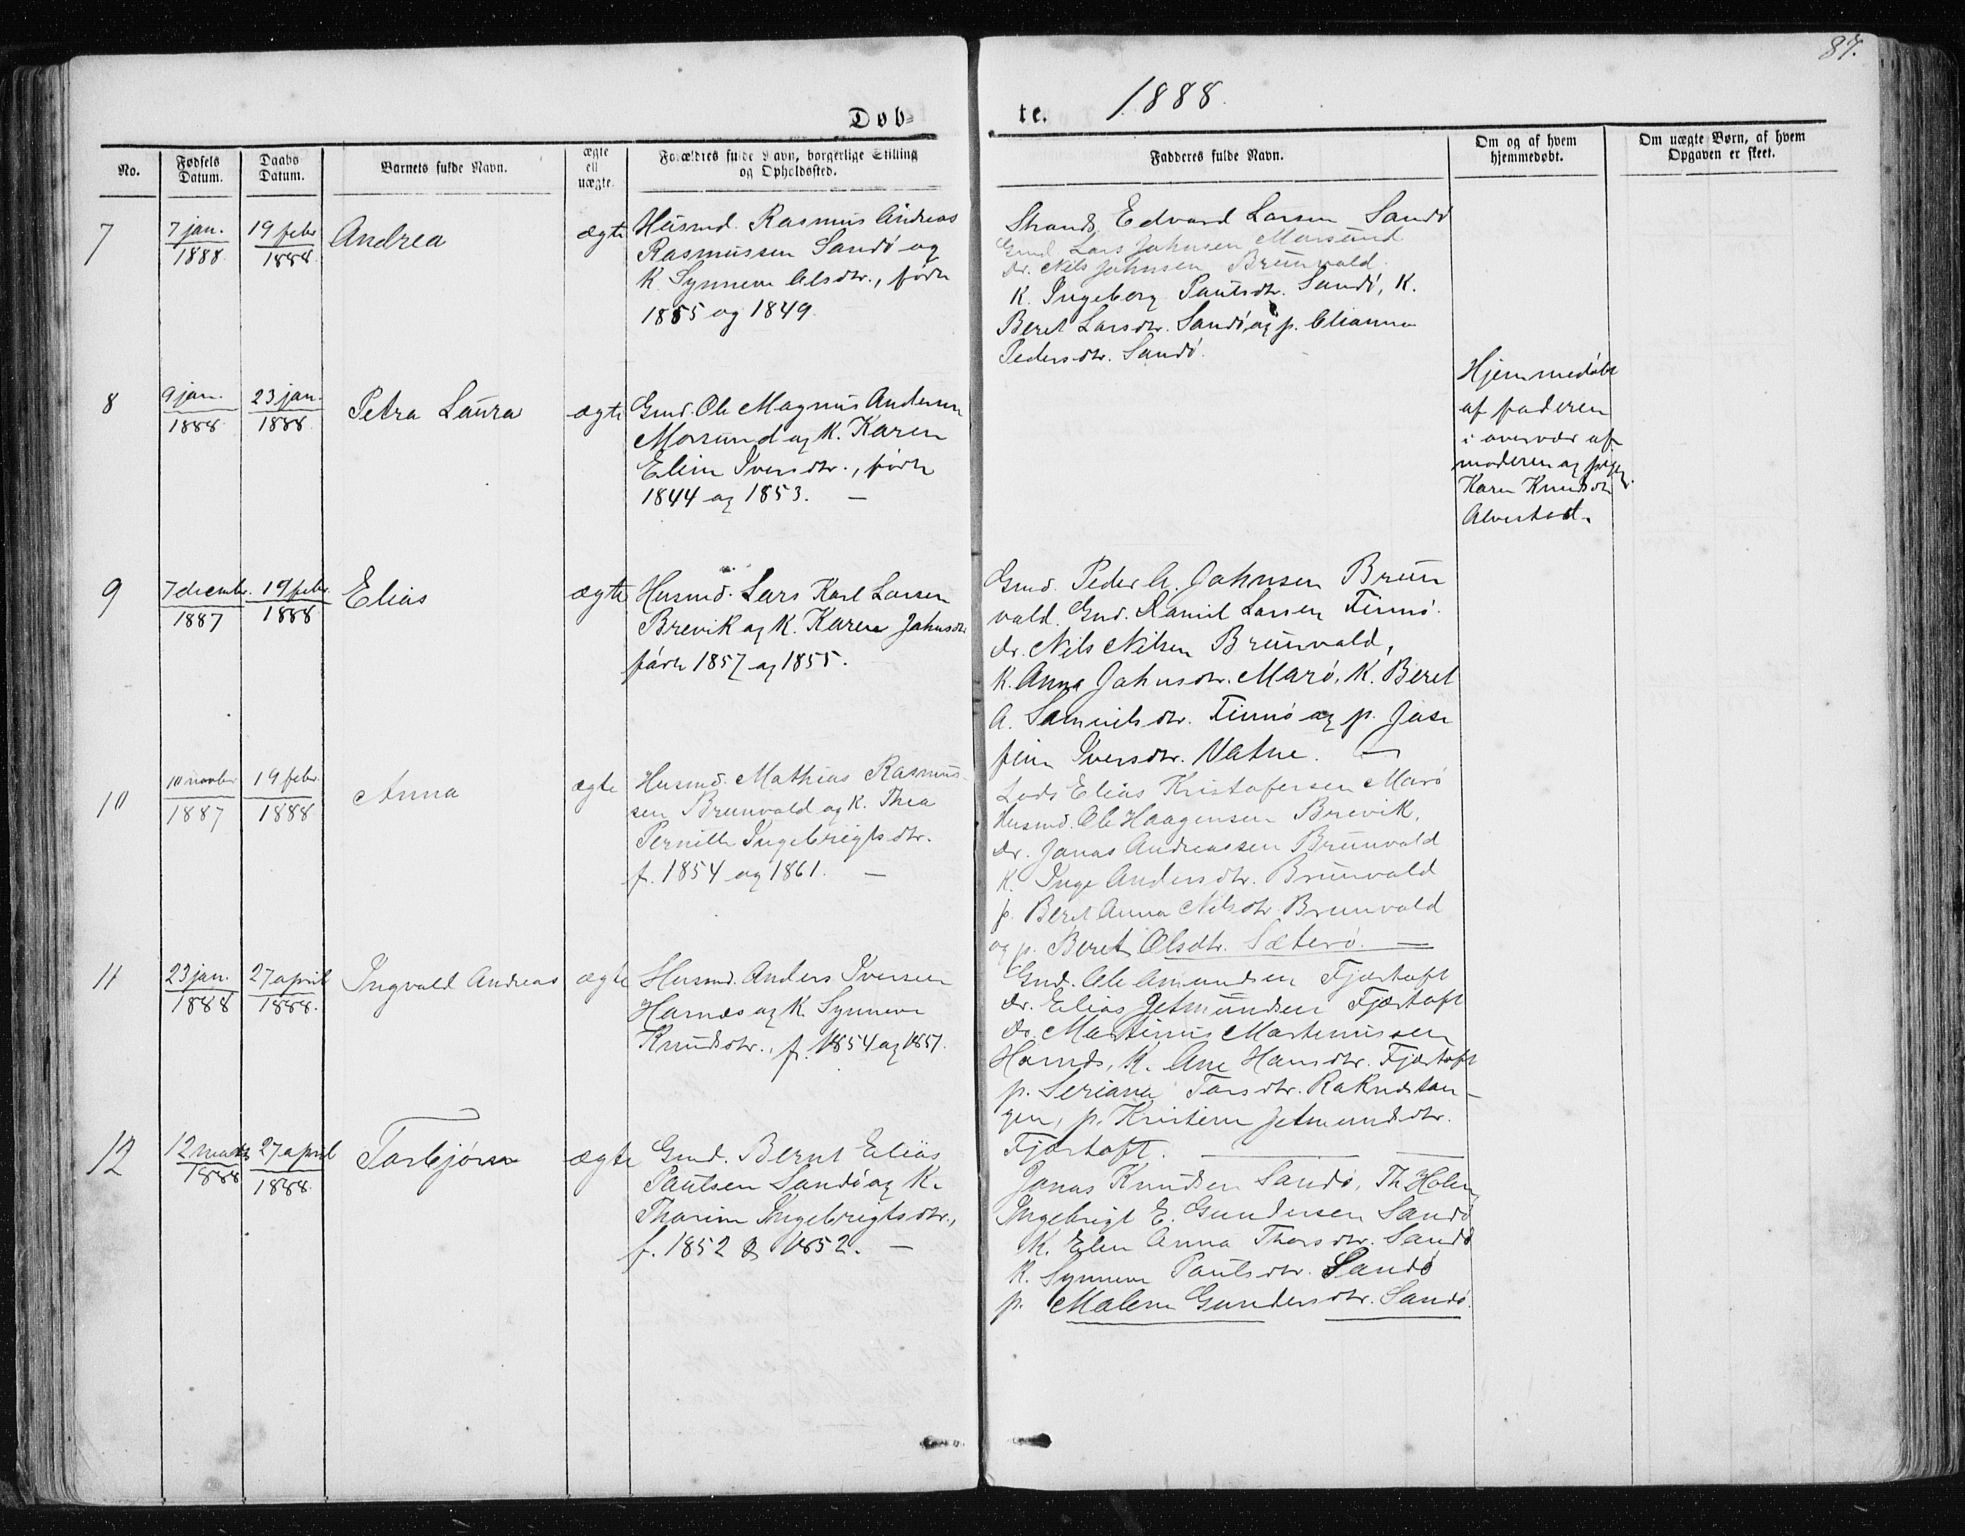 87.
1888.
Døb=
te.
No.
Fødsels Datum.
Daabs Datum.
Barnets fulde Navn.
ægte ell uægte.
Forældres fulde Navn, borgerlige Stilling
og Opholdssted.
Fadderes fulde Navn.
Om og af hvem
hjemmedøbt.
Om uægte Børn, af hvem
Opgaven er skeet.
7
7 jan.
1888.
19 febr
1888
Andrea
ægte
Husmd. Rasmus Andreas
Rasmussen Sandø og
K. Synneve Olsdtr., fødte
1855 og 1849.
Strands. Edvard Larsen Sandø
Gmd Lars Johnsen Morsund
dr. Nils Johnsen Brunvold.
K. Ingeborg Paulsdtr. Sandø, K.
Beret Larsdtr. Sandø og p.
Pedersdtr. Sandø.
8
9 jan.
1888
23 jan.
1888
Petra Laura
ægte
Gmd. Ole Magnus Andersen
Morsund og K. Karen
Eline Iversdtr., fødte
1844 og 1853. —
Hjemmedøbt
af faderen
i overvær af
moderen og pigen
Karen Knudsdtr
Alvestad.
9
7 decembr.
1887
19 febr.
1888
Elias
ægte
Husmd. Lars Karl Larsen
Brevik og K. Karen Johnsdtr
fødte 1857 og 1855.
Gmd. Peder A. Johnsen Brun
vold. Gmd. Daniel Larsen Finnø.
dr. Nils Nilsen Brunvold,
K. Anna Johnsdtr. Marø, K. Beret
A. Samuelsdtr. Finnø og p. Jose
fine Iversdtr. Vatne. —
10
10 novbr
1887
19 febr.
1888
Anna
ægte
Husmd. Mathias Rasmus-
sen Brunvold og K. Thea
Pernille Ingebrigtsdtr.
f. 1854 og 1861. —
Lods Elias Kristofersen Marø
Husmd. Ole Haagensen Brevik.
dr. Jonas Andreassen Brunvold
K. Inge Andersdtr. Brunvold
p. Beret Anna Nilsdtr Brunvold
og p. Beret Olsdtr. Sæterø. —
11
23 jan.
1888
27 april
1888.
Ingvald Andreas
ægte
Husmd. Anders Iversen
Harnæs og K. Synneve
Knudsdtr., f. 1854 og 1857.
Gmd. Ole Amundsen Fjørtoft
dr. Elias Jetmundsen Fjørtoft
dr. Martinus Martinussen
Harnæs, K. Ane Hansdtr. Fjørtoft
p. Seriana Larsdtr. Raknestan-
gen, p. Kristine Jetmundsdtr.
Fjørtoft. —
12
12 marts
1888
27 april
1888.
Torbjørn
ægte
Gmd. Bernt Elias
Paulsen Sandø og K.
Thorine Ingebrigtsdtr.,
f. 1852 & 1852. —
Jonas Knudsen Sandø, Th. Holen
Ingebrigt E. Gundersen Sandø
K. Elen Anna Thorsdtr. Sandø
K. Synneve Paulsdtr. Sandø
p. Malene Gundersdtr. Sandø.